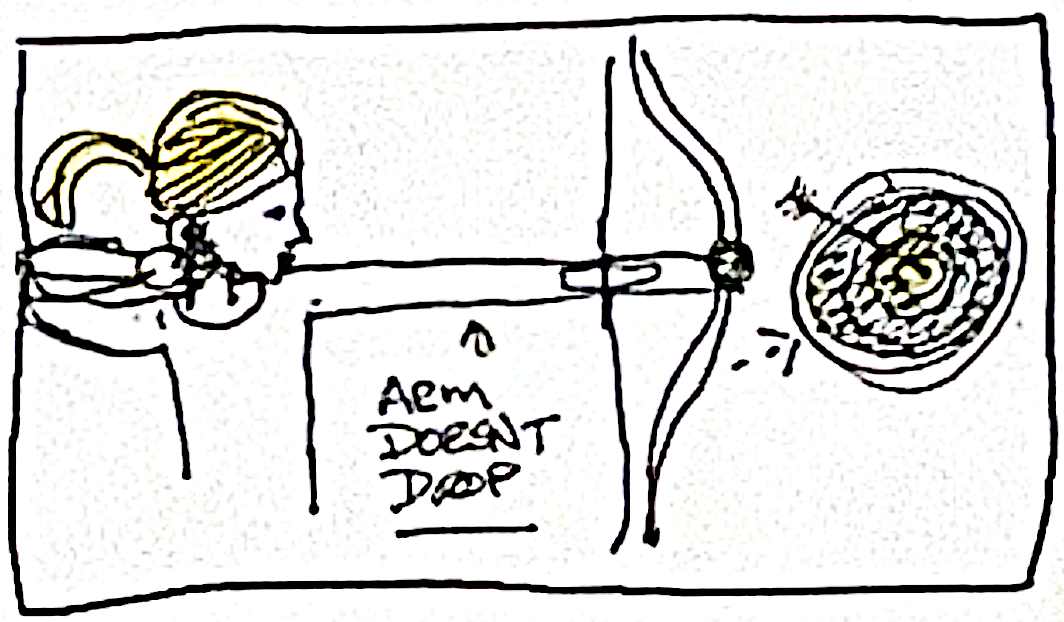 ARM
DOESNT
DROP